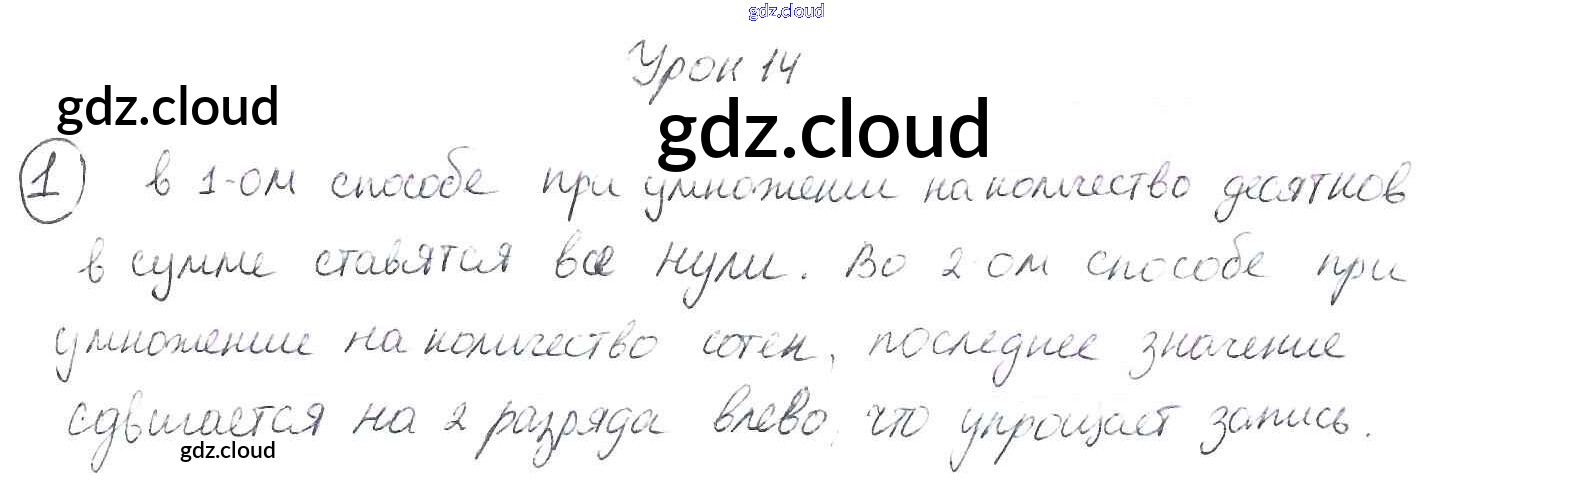 gdz.cloud
Урок 14
gdz.cloud
gdz.cloud
1 в 1-ом способе при умножении на количество десятков
в сумме ставятся все нули. Во 2-ом способе при
умножении на количество сотен, последнее значение
сдвигается на 2 разряда влево, что упрощает запись.
gdz.cloud